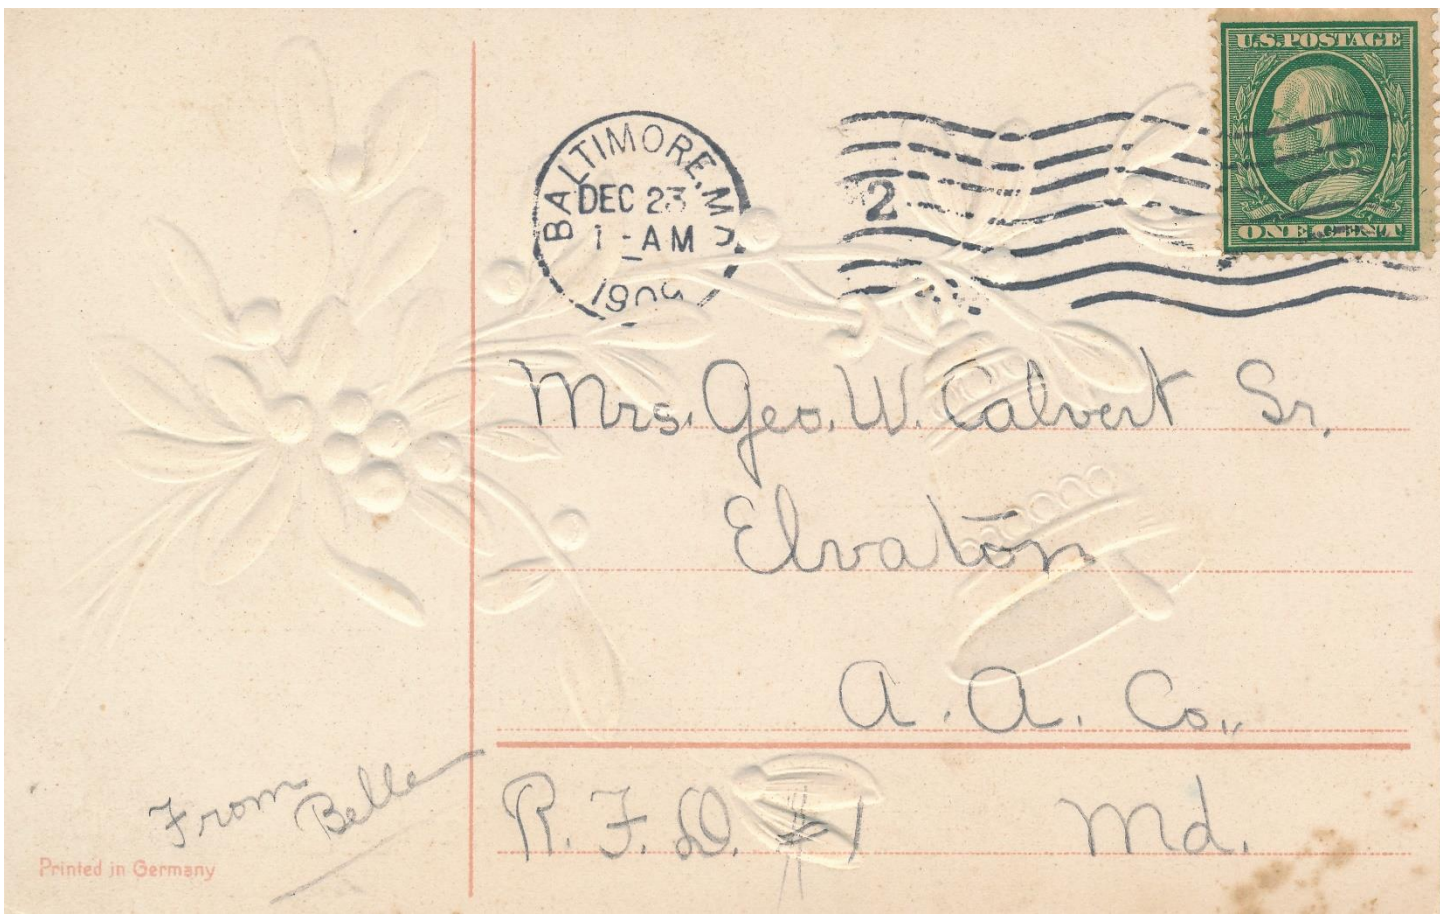 U.S. POSTAGE
ONE CENT
BALTIMORE, MD
DEC 23
1-AM
1909
2
Mrs. Geo. W. Calvert Sr.
Elvaton
A. A. Co.,
R. F. D. #1 Md.
From
Belle
Printed in Germany